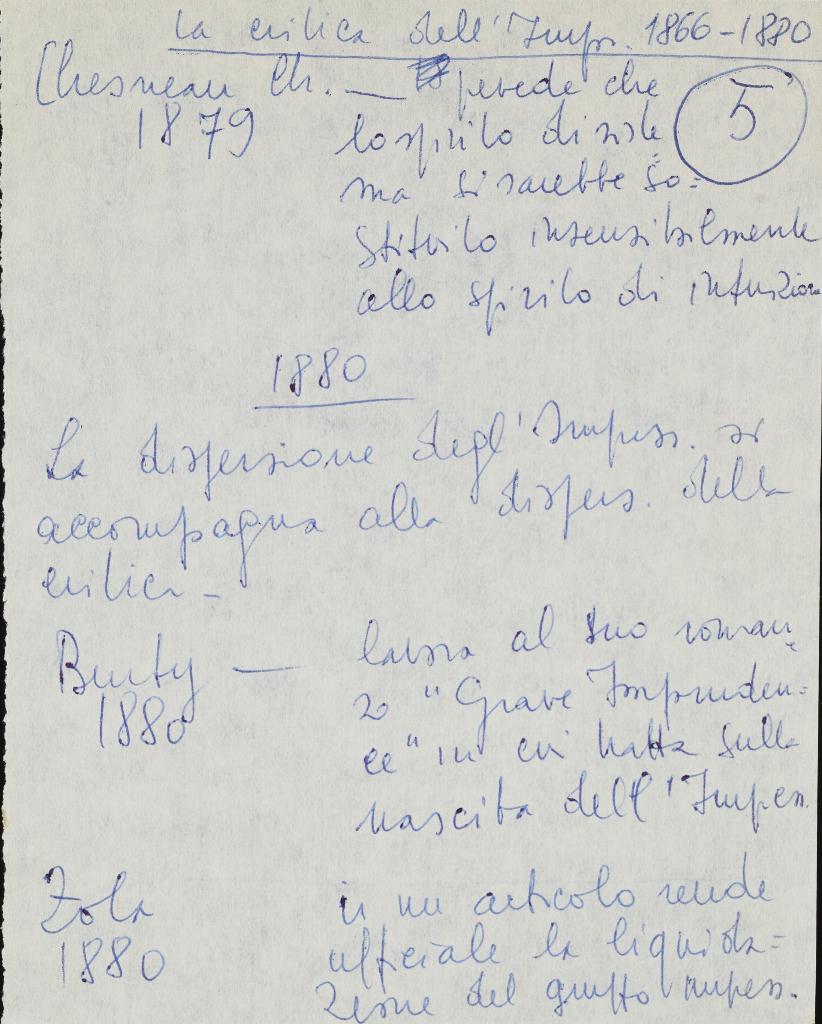 La critica dell'Impr. 1866-1880
Chesneau Ch. — prevede che
1879 lo spirito di siste
5
ma si sarebbe so=
stituito insensibilmente
allo spirito di intuizione
1880
La dispersione degl'Impress. si
accompagna alla dispers. della
critica -
Burty — lavora al suo roman
1880 zo "Grave Impruden=
ce" in cui tratta sulla
nascita dell'Impress.
Zola in un articolo rende
1880 ufficiale la liquida=
zione del gruppo impress.